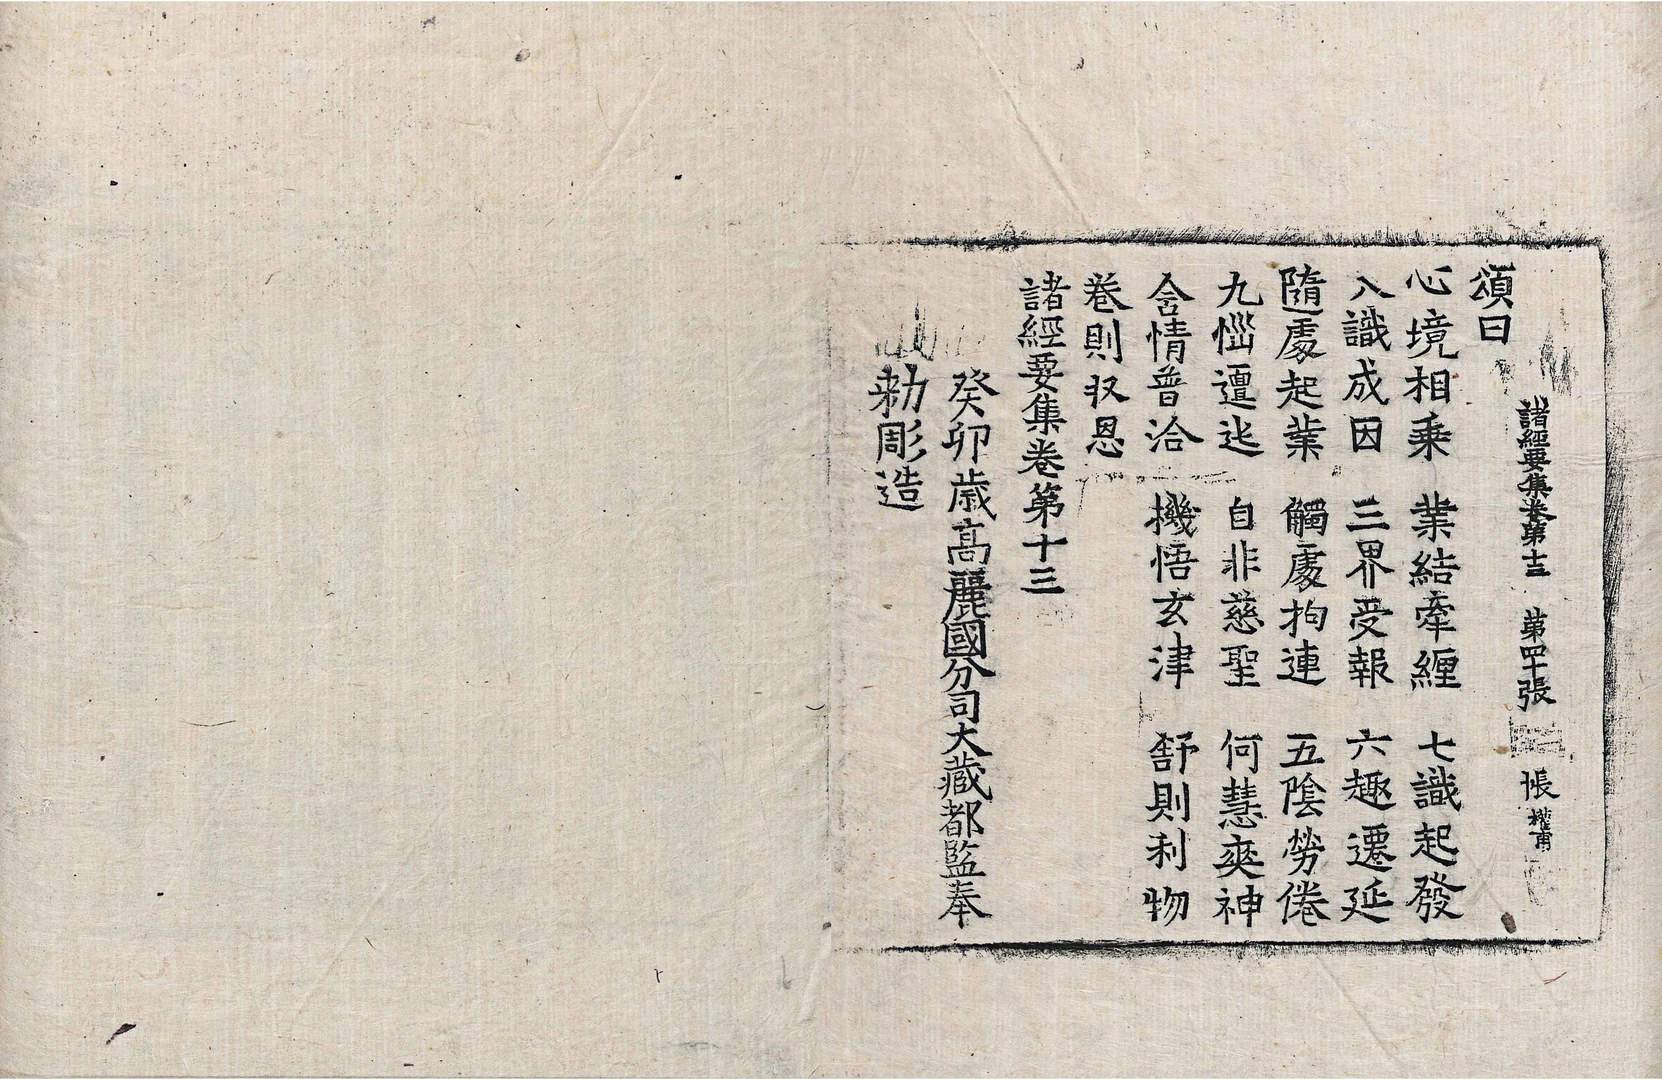 諸經要集卷第十三 第四十張 悵
頌曰
心境相乘 業結牽纒 七識起發
八識成因 三界受報 六趣遷延
隨處起業 觸處拘連 五陰勞倦
九惱邅迍 自非慈聖 何慧爽神
含情普洽 機悟玄津 舒則利物
卷則収恩
諸經要集卷第十三
癸卯歲高麗國分司大藏都監奉
勅彫造